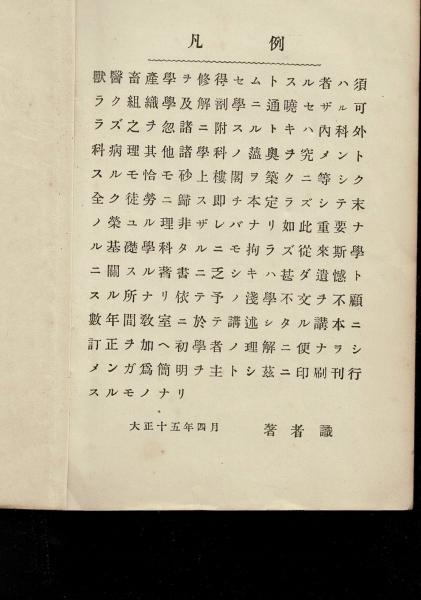 凡例
獸醫畜產學ヲ修得セムトスル者ハ須
ラク組織學及解剖學ニ通曉セザル可
ラズ之ヲ忽諸ニ附スルトキハ內科外
科病理其他諸學科ノ蘊奧ヲ究メント
スルモ恰モ砂上樓閣ヲ築クニ等シク
全ク徒勞ニ歸ス即チ本定ラズシテ末
ノ榮ユル理ニ非ザレバナリ如此重要
ナル基礎學科タルニモ拘ラズ從來斯學
ニ關スル著書ニ乏シキハ甚ダ遺憾ト
スル所ナリ依テ予ノ淺學不文ヲ顧
數年間敎室ニ於テ講述シタル講本ニ
訂正ヲ加ヘ初學者ノ理解ニ便ナラシ
メンガ爲簡明ヲ主トシ茲ニ印刷刊行
スルモノナリ
大正十五年四月 著者識